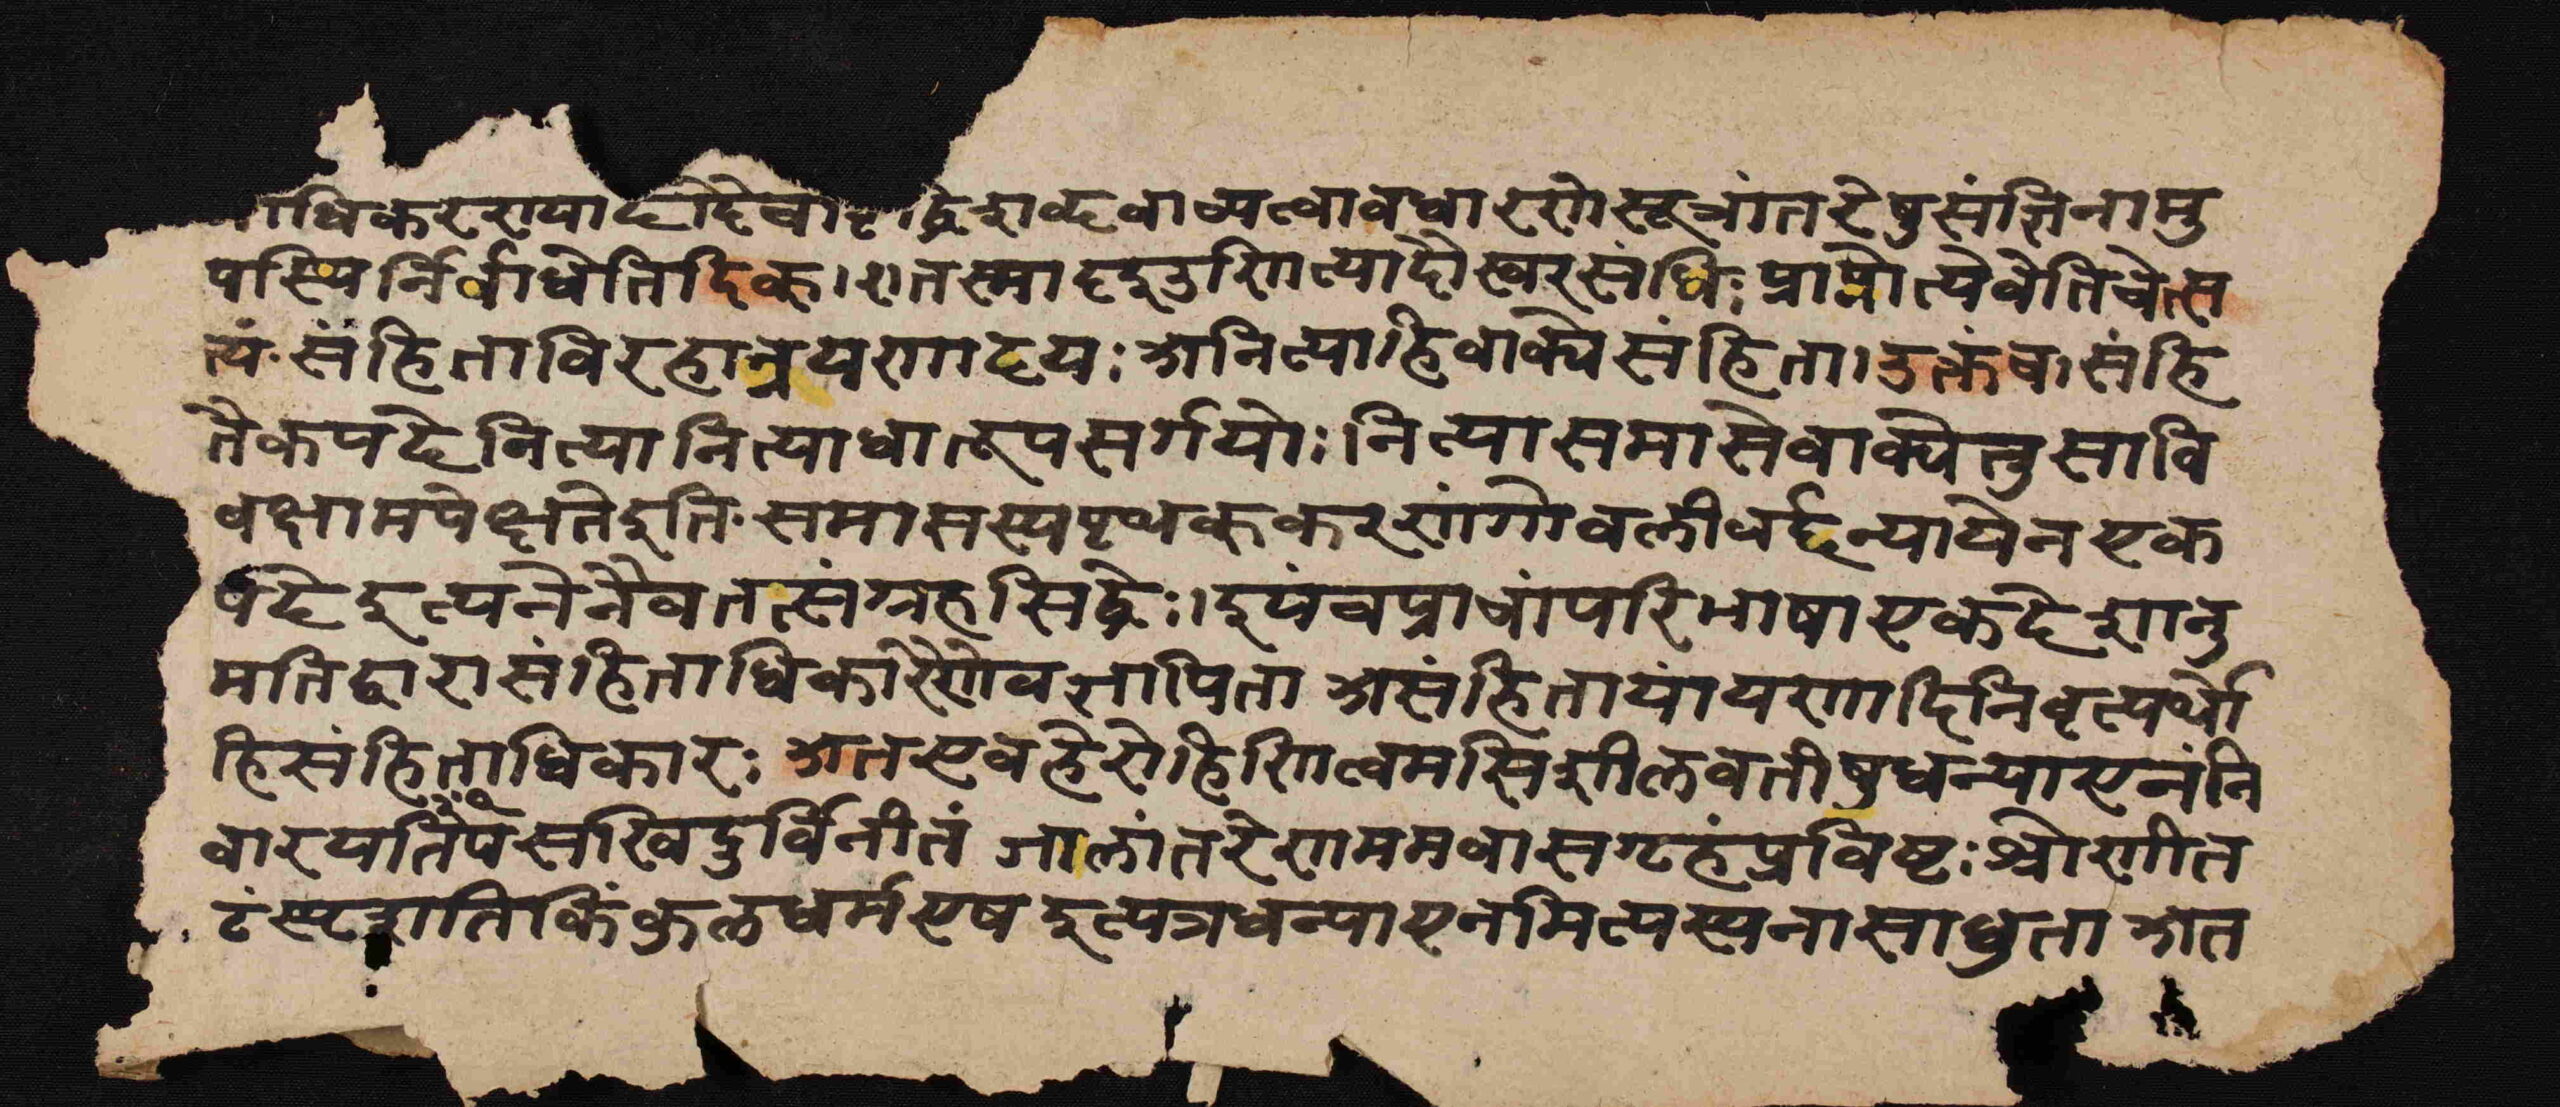 ाधिकरणयादौदेवाद्देशब्दवाच्यत्वावधारणेसूत्रांतरेषुसंज्ञिनामु
पस्थिर्निर्वाधेतिदिक्।२।तस्मादइउणित्यादौस्वरसंधिःप्राप्नोत्येवेतिचेत्स
त्यं॰संहिताविरहान्नयणादयःअनित्याहिवाक्येसंहिता।उक्तंच।संहि
तैकपदेनित्यानित्याधातूपसर्गयोःनित्यासमासेवाक्येतुसावि
वक्षामपेक्षतेइति॰समासस्यपृथक्करणंगोवलीवर्द्दन्यायेनएक
पदेइत्यनेनैवतत्संग्रहसिद्धेः।इयंचप्राचांपरिभाषाएकदेशानु
मतिद्वारासंहिताधिकारेणैवज्ञापिताअसंहितायांयणादिनिवृत्यर्थो
हिसंहिताधिकारःअतएवहेरोहिणित्वमसिशीलवतीषुधन्याएनंनि
वारयतिपसखिदुर्विनीतंजालांतरेणममवासगृहंप्रविष्टःश्रोणीत
टंस्पृशतिकिंकुलधर्मएषइत्यत्रधन्याएनमित्यस्यनासाधुताअत